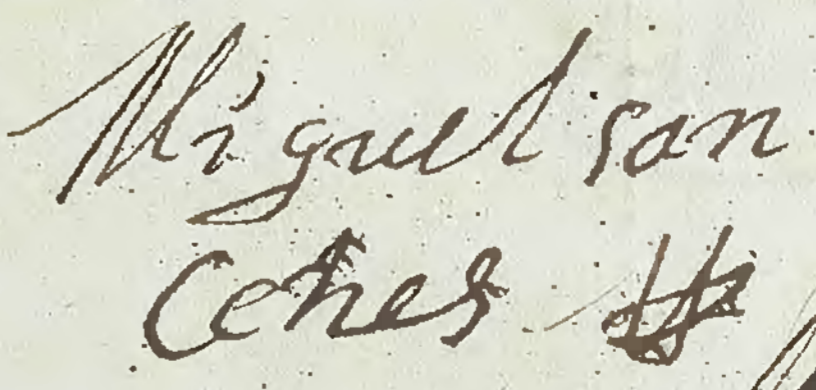 Miguel san
Cehes